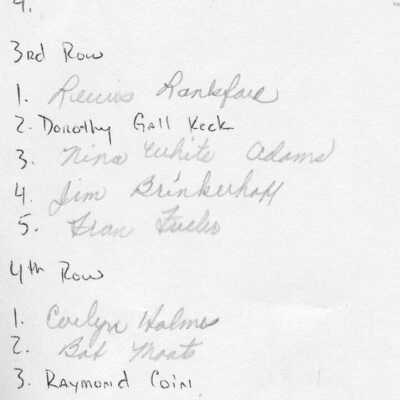 4.
3rd Row
1. Lankford
2. Dorothy Gall Keck
3. Nina White Adams
4. Jim Brinkerhoff
5. Fran
4th Row
1. Evelyn Holmes
2. Bob Moats
3. Raymond Coin